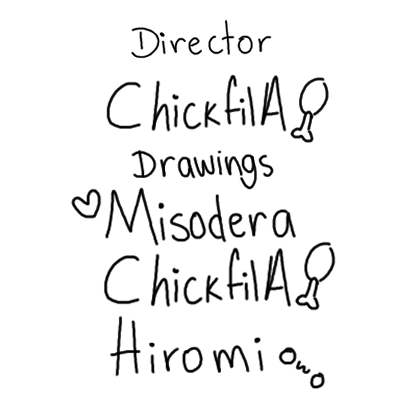 Director
ChickfilA
Drawings
Misodera
ChickfilA
Hiromi OwO